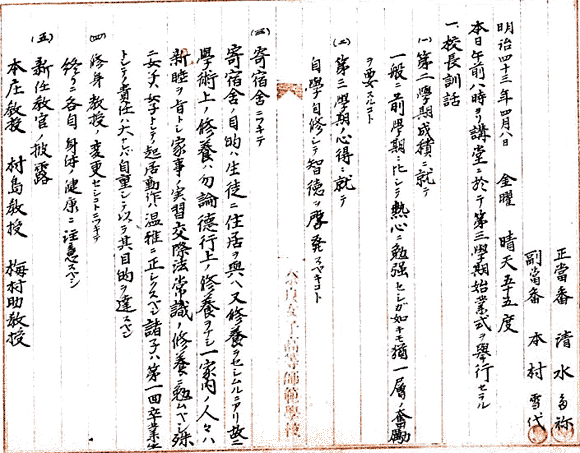 正當番 清水
副當番 本村雪代
明治四十三年四月八日 金曜 晴天五十五度
本日午前八時ヨリ講堂ニ於テ第三學期始業式ヲ擧行セラル
一、校長訓話
(一)第二學期成績ニ就テ
一般ニ前學期ニ比シテ熱心ニ勉强セシガ如キモ猶一層ノ奮勵
ヲ要スルコト
(二)第三學期ノ心得ニ就テ
自學自修シテ智德ヲ啓發スベキコト
奈良女子高等師範學校
(三)寄宿舍ニツキテ
寄宿舍ノ目的ハ生徒ニ住居ヲ與ヘ又修養ヲセシムルニアリ故ニ
學術上ノ修養ハ勿論德行上ノ修養ヲナシ一家内ノ人々ハ
親睦ヲ旨トシ家事ノ實習交際法常識ノ修養ニ勉ムベシ殊
ニ女子ハ女子トシテ起居動作ノ溫雅ニ正シクスベシ諸子ハ第一回卒業生
トシテノ責任ハ大ナレバ自重シテ以テ其目的ヲ達スベシ
(四)修身敎授ノ變更セシコトニツキテ
終リニ各自身體ノ健康ニ注意スベシ
(五)新任敎官ノ披露
本庄敎授 村島敎授 梅村助敎授